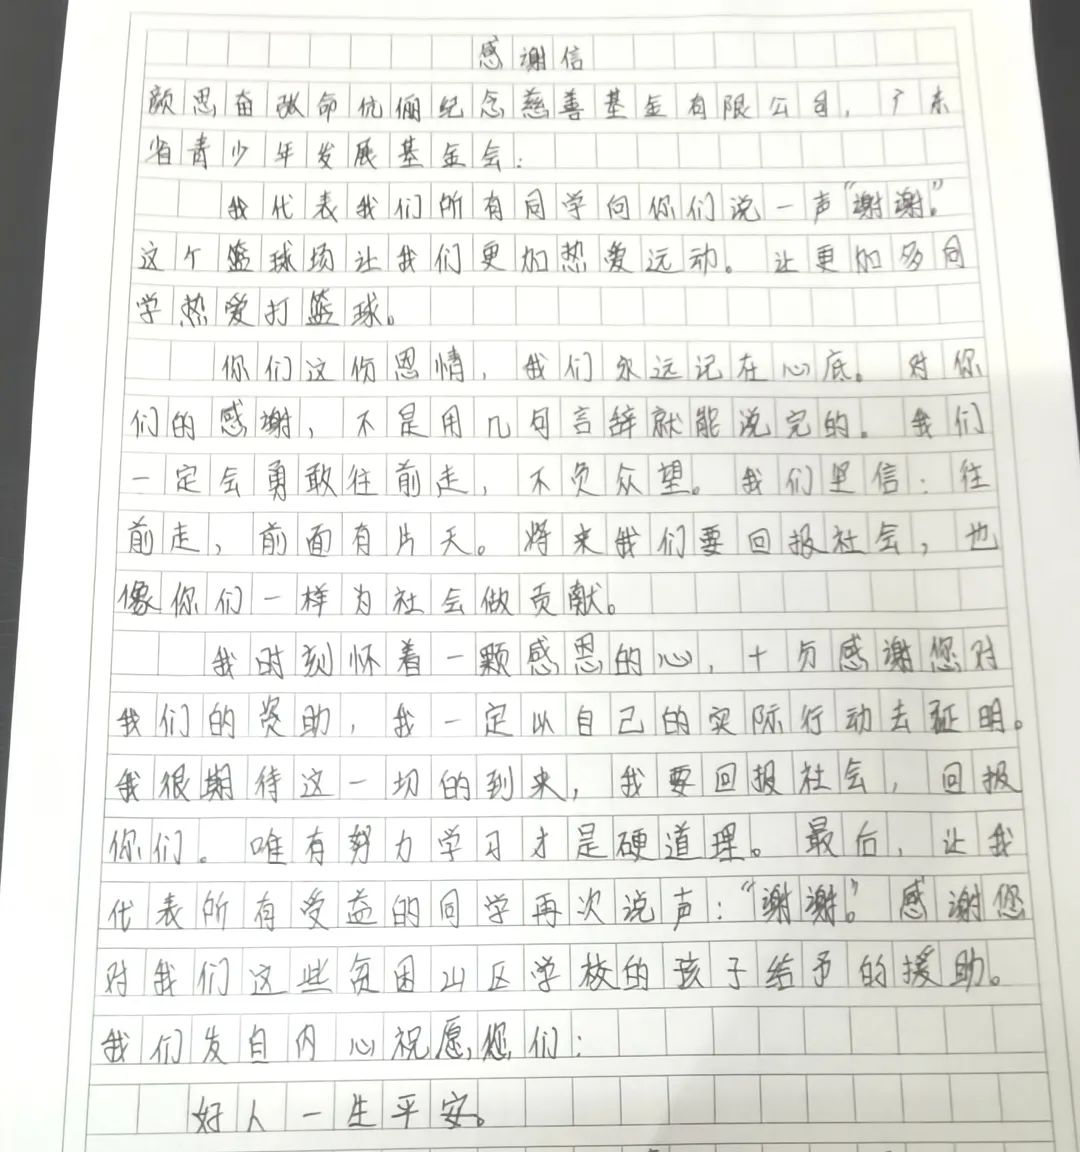 感谢信
颜思奋张命伉俪纪念慈善基金有限公司，广东
省青少年发展基金会：
我代表我们所有同学向你们说一声“谢谢。”
这个篮球场让我们更加热爱远动。让更加多同
学热爱打篮球。
你们这份恩情，我们永远记在心底。对你
们的感谢，不是用几句言辞就能说完的。我们
一定会勇敢往前走，不负众望。我们坚信：往
前走，前面有片天。将来我们要回报社会，也
像你们一样为社会做贡献。
我时刻怀着一颗感恩的心，十分感谢您对
我们的资助，我一定以自己的实际行动去证明。
我很期待这一切的到来，我要回报社会，回报
你们。唯有努力学习才是硬道理。最后，让我
代表所有受益的同学再次说声：“谢谢。”感谢您
对我们这些贫困山区学校的孩子给予的援助。
我们发自内心祝愿您们：
好人一生平安。